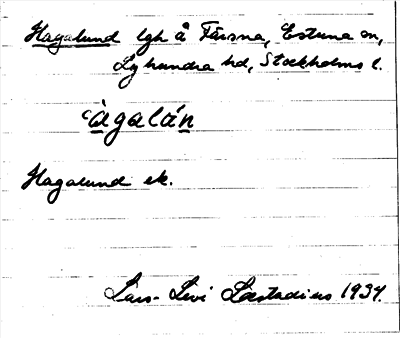 Hagalund lgh å Färsna, Estuna sn,
Lyhundra hd, Stockholms l.
‘àgalán
Hagalund ek.
Lars-Levi Læstadius 1934.